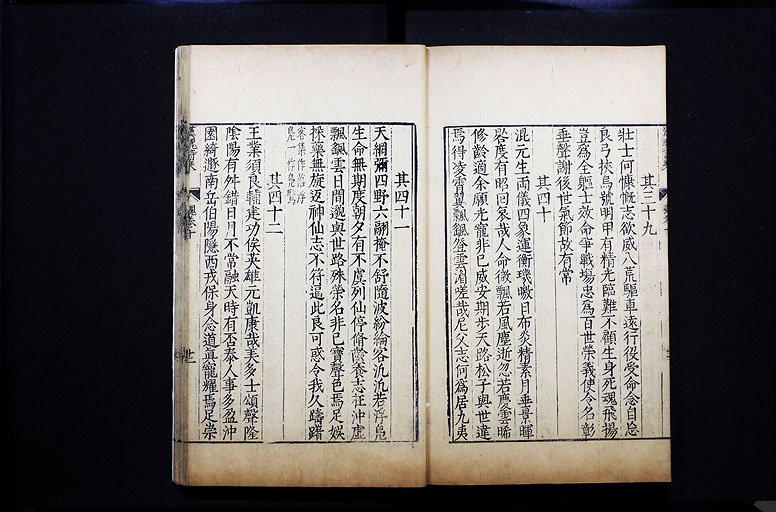 其三十九
壯士何慷慨志欲威八荒驅車遠行役受命念自忘
良弓挾烏號明甲有精光臨難不顧生身死魂飛揚
豈爲全軀士效命爭戰場忠爲百世榮義使令名彰
垂聲謝後世氣節故有常
其四十
混元生両儀四象運衡璣曒日布炎精素月垂景暉
晷度有昭回哀哉人命微飄若風塵逝忽若慶雲晞
修齡適余願光寵非己威安期步天路松子與世違
焉得凌霄翼飄颻登雲湄嗟哉尼父志何爲居九夷
其四十一
天網彌四野六翮掩不舒隨波紛綸客汎汎若浮鳧
生命無期度朝夕有不虞列仙停脩齡養志在沖虛
飄颻雲日間邈與世路殊榮名非己寶聲色焉足娛
採藥無旋返神仙志不符逼此良可惑令我久躊躇
其四十二
王業須良輔建功俟英雄元凱康哉美多士頌聲隆
陰陽有舛錯日月不常融天時有否泰人事多盈沖
園綺遯南岳伯陽隱西戎保身念道真寵耀焉足崇